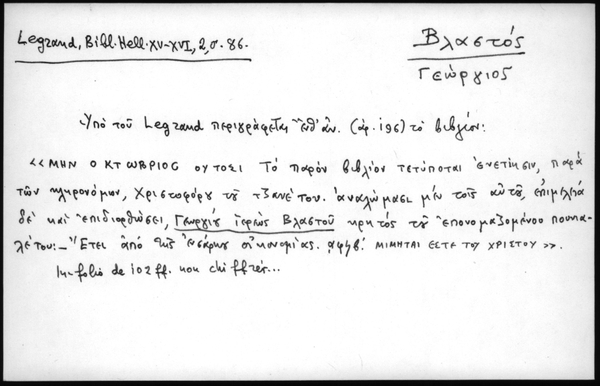 Legrand, Bibl. Hell. XV-XVI, 2, σ. 86.
Βλαστός
Γεώργιος
Ὑπὸ τοῦ Legrand περιγράφεται ἔνθ' ἀν. (ἀρ. 196) τὸ βιβλίον:
«ΜΗΝ ΟΚΤΩΒΡΙΟΣ ΟΥΤΟΣΙ Τὸ παρὸν βιβλίον τετύπωται ἐνετίησιν, παρὰ
τῶν κληρονόμων, Χριστοφόρου τοῦ τζανέτου. ἀναλώμασι μὲν τοῖς αὐτοῦ, ἐπιμελείᾳ
δὲ καὶ ἐπιδιορθώσει, Γεωργίου ἱερέως Βλαστοῦ κρητός τοῦ ἐπονομαζομένου πουνια-
λέτου:_ Ἔτει ἀπὸ τῆς ἐνσάρκου οἰκονομίας. ͵αφϟβ΄. ΜΙΜΗΤΑΙ ΕΣΤΕ ΤΟΥ ΧΡΙΣΤΟΥ».
In-folio de 102 ff. non chiffrés...